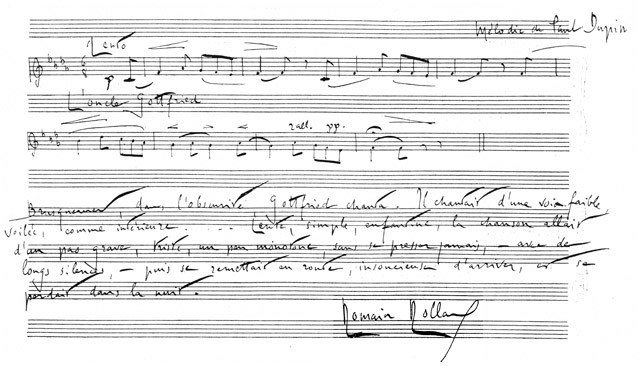 Mélodie de Paul Dupin
Lento
p
L'oncle Gottfried
rall. pp.
Brusquement, dans l'obscurité Gottfried chanta. Il chantait d'une voix faible,
voilée, comme intérieure . . . . Lente, simple, enfantine, la chanson allait
d'un pas grave, triste, un peu monotone, sans se presser jamais, — avec de
longs silences, — puis se remettait en route, insoucieuse d'arriver, et se
perdait dans la nuit.
Romain Rolland